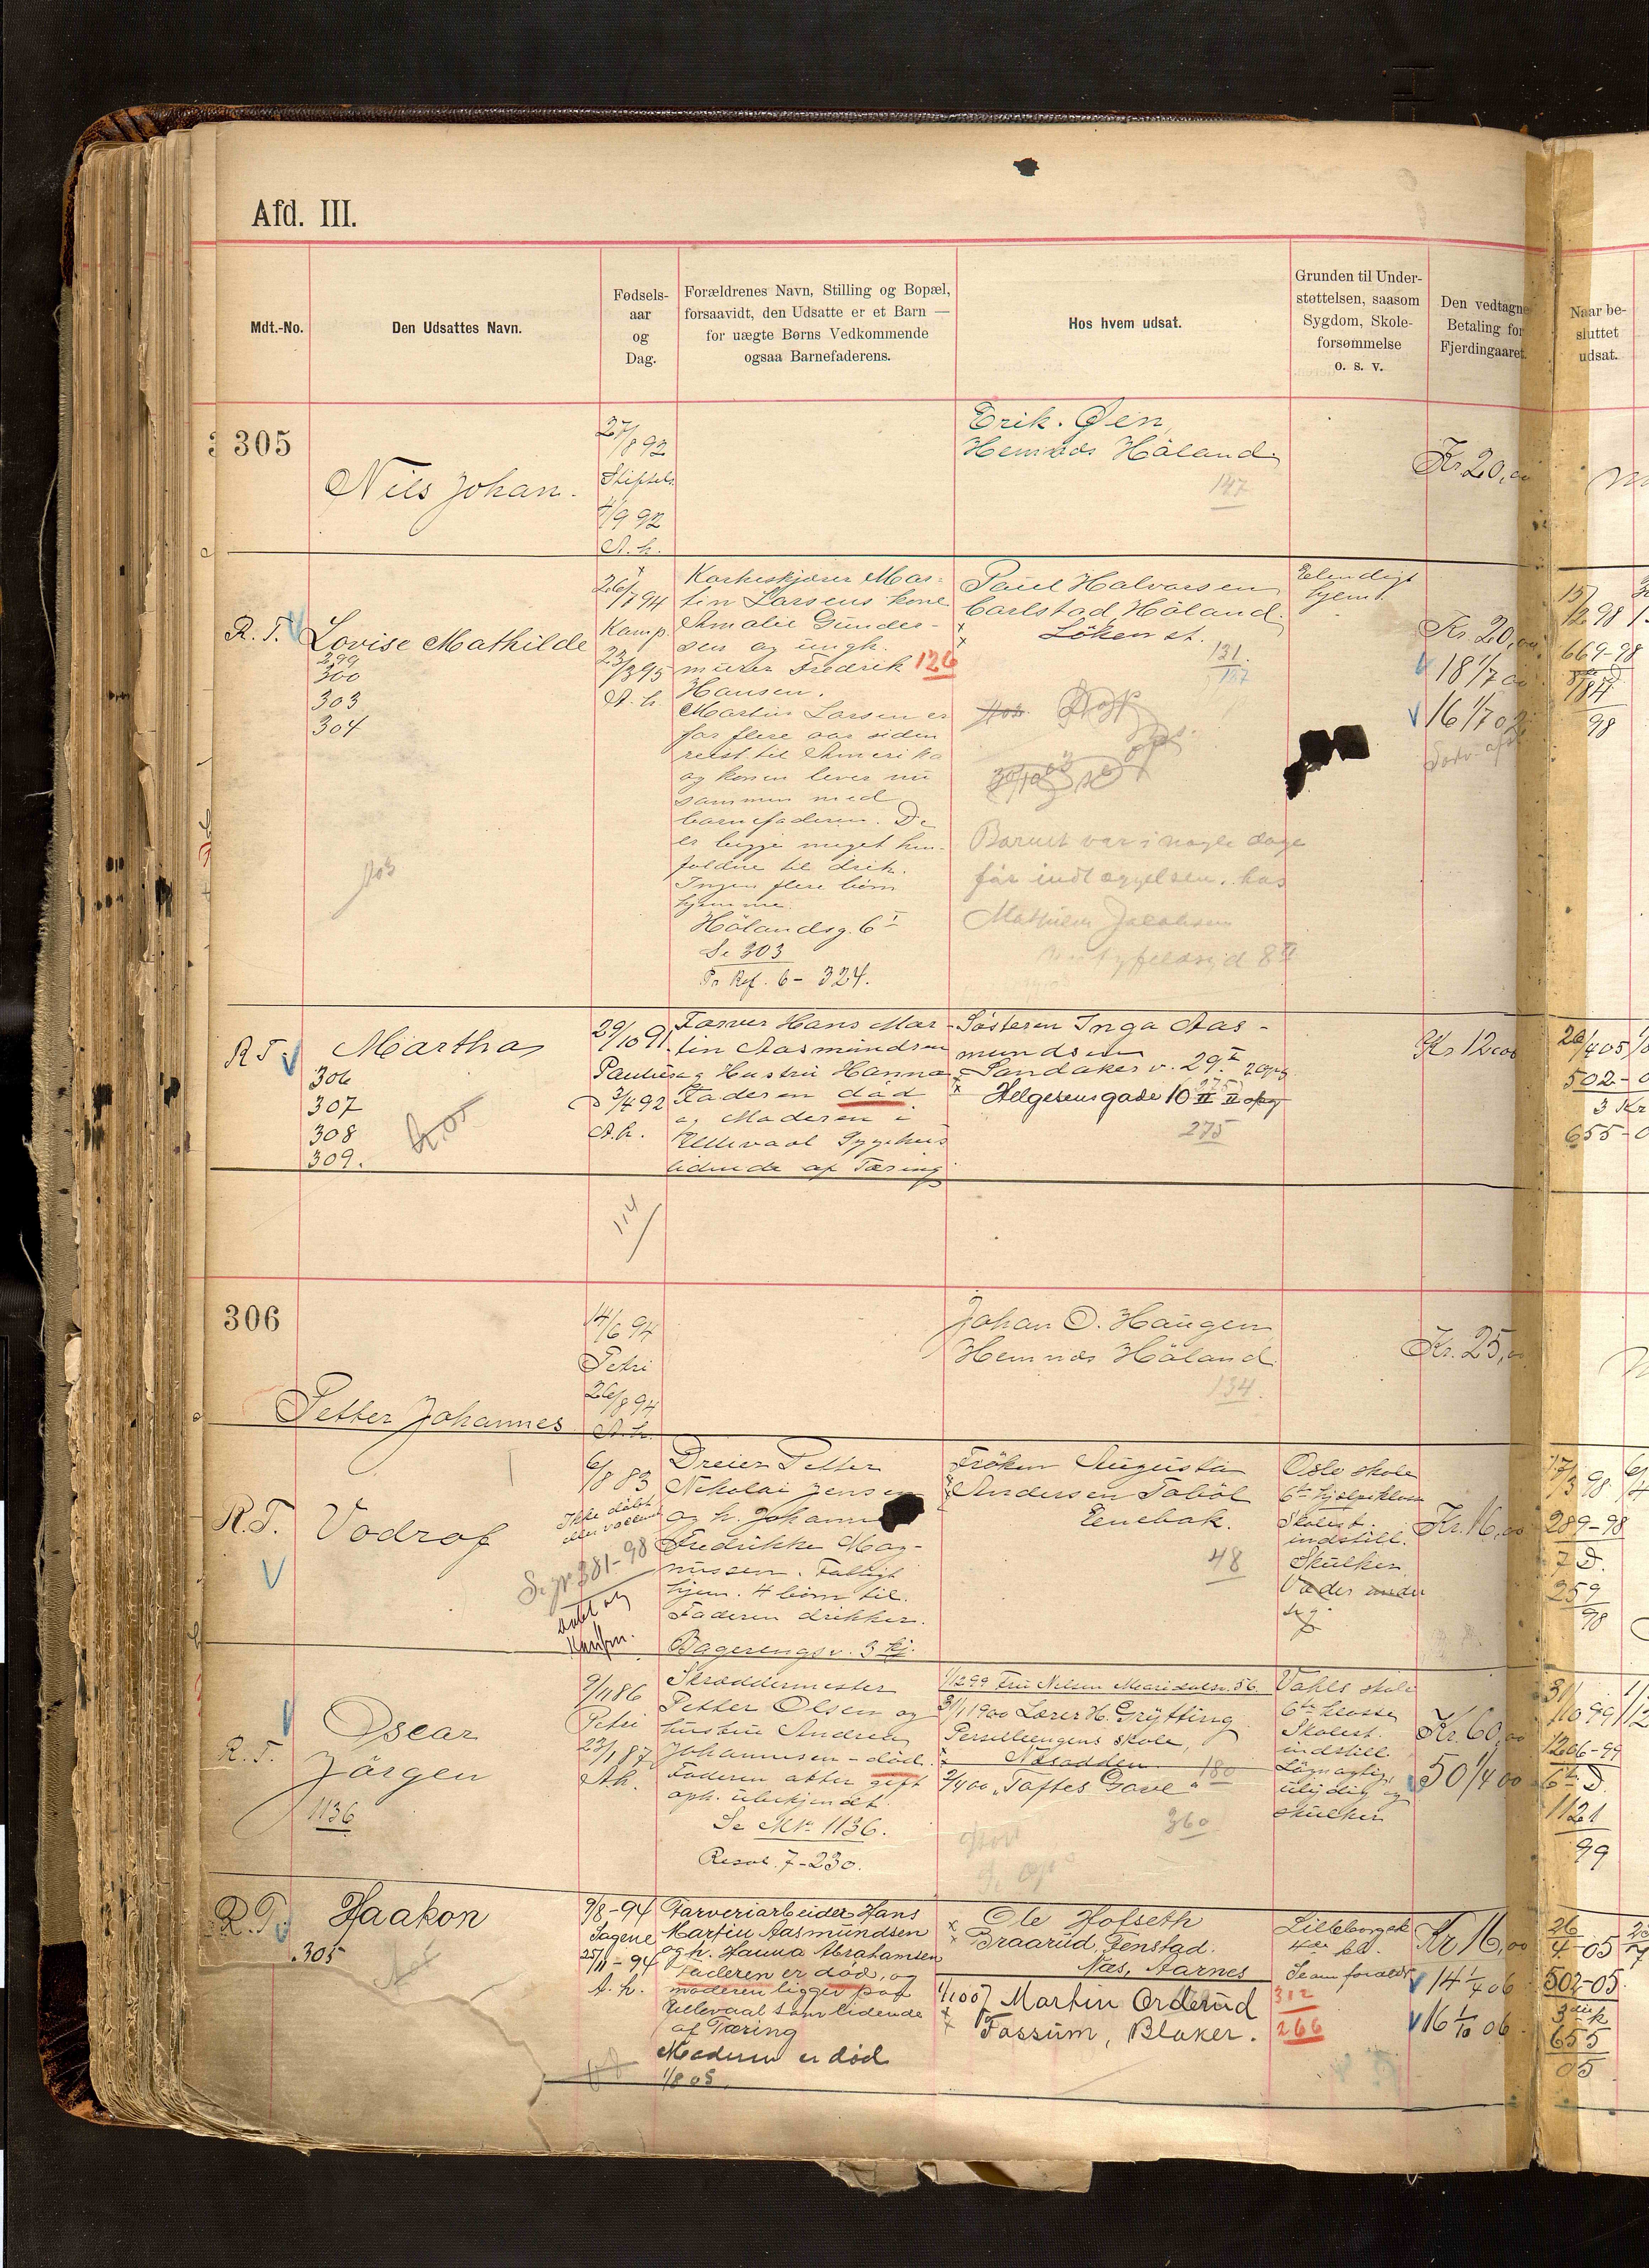 Afd. III.
Mdt.-No.
Den Udsattes Navn.
Fødsels-
aar
og
Dag.
Forældrenes Navn, Stilling og Bopæl,
forsaavidt, den Udsatte er et Barn —
for uægte Børns Vedkommende
ogsaa Barnefaderens.
Hos hvem udsat.
Grunden til Under-
støttelsen, saasom
Sygdom, Skole-
forsømmelse
o. s. v.
Den vedtagne
Betaling for
Fjerdingaaret.
Naar be-
sluttet
udsat.
305
Nils Johan.
27/8 92
4/9 92
A. h.
Erik. Øen,
Hemnæs Höland.
147
Kr. 20,00
R. T.
Lovise Mathilde
299
300
303
304
26/7 94
Kamp.
23/3 95
A. h.
Martin Larsens kone
Amalie Gunder-
sen og ungk.
murer Fredrik 126
Hansen.
Martin Larsen er
for flere aar siden
reist til Amerika
og konen lever nu
sammen med
barnefaderen. De
er begge meget hen-
faldne til drik.
Ingen flere börn
hjemme.
Hölandsg. 6 I
Se 303
Pr Ref. 6 - 324.
Paul Halvorsen
Carlstad, Höland.
Löken st.
131.
Barnet var i nogle dage
för indlæggelsen hos
Elendigt
hjem.
Kr. 20,00
18 1/7 00
16 1/7 02
15/12 98
669-98
98
R T.
Martha
306
307
308
309.
29/10 91
Paulus
3/4 92
A. h.
Farver Hans Mar-
tin Aasmundsen
og Hustru Hanna
Faderen död
og Moderen i
Ullevaal Sygehus
lidende af Tæring
Søsteren Inga Aas-
mundsen
Sandakerv. 29 I
Helgesensgade 10 II
275
Kr 12,00
26/4 05
502-0
655-0
114
306
Petter Johannes
14/6 94
Petri
26/8 94
A. h.
Johan O. Haugen
Hemnæs Höland
134.
Kr. 25,00
R. T.
Vodrof
6/8 83
Ikke döbt
eller vaccin
Se gr 381-98
döbt og
Konfirm.
Dreier Petter
Nikolai Jensen
og h. Johanne
Fredrikke Mag-
nussen. Fattigt
hjem. 4 börn til.
Faderen drikker.
Bagerengsv. 3 kj.
Fröken Augusta
Andersen Taböl
Enebak.
48
Oslo skole
6te hjælpeklasse
Skolest.
indstill.
Skulker
Vader under
sig.
Kr. 16,00
17/3 98
289-98
7 D.
259
98
R. T.
Oscar
Jörgen
1136
9/11 86
Petri
23/1 87
Ah.
Skræddermester
Petter Olsen og
hustru Andrea
Johannesen - död.
Faderen atter gift
oph. ubekjendt.
Se No. 1136.
Resol. 7-230.
1/12 99 Fru Nilsen Maridalsv. 56.
3/1 1900 Lærer H. Grytting
Persteilengens skole,
Nesodden 180
2/4 00 "Toftes Gave"
360
Vahls skole
6te klasse
Skolest.
indstill.
Lögnagtig,
ulydig og
skulker
Kr. 60,00
50 1/4 00
31/10 99
1206-99
6te D.
1121
99
R. T.
Haakon
305
9/8-94
Sagene
25/11-94
A. h.
Farveriarbeider Hans
Martin Aasmundsen
og h. Hanna Abrahamsen
Faderen er död, og
moderen ligger paa
Ullevaal som lidende
af Tæring
Moderen er död
1/8 05.
Ole Hofseth
Braarud, Fenstad.
Næs, Aarnes
1/10 07 Martin Orderud
Fossum, Blaker.
Lilleborgsk
4de kl.
Se om foræld
312
266
Kr. 16,00
14 1/4 06
16 1/10 06
26/4-05
502-05.
655
05